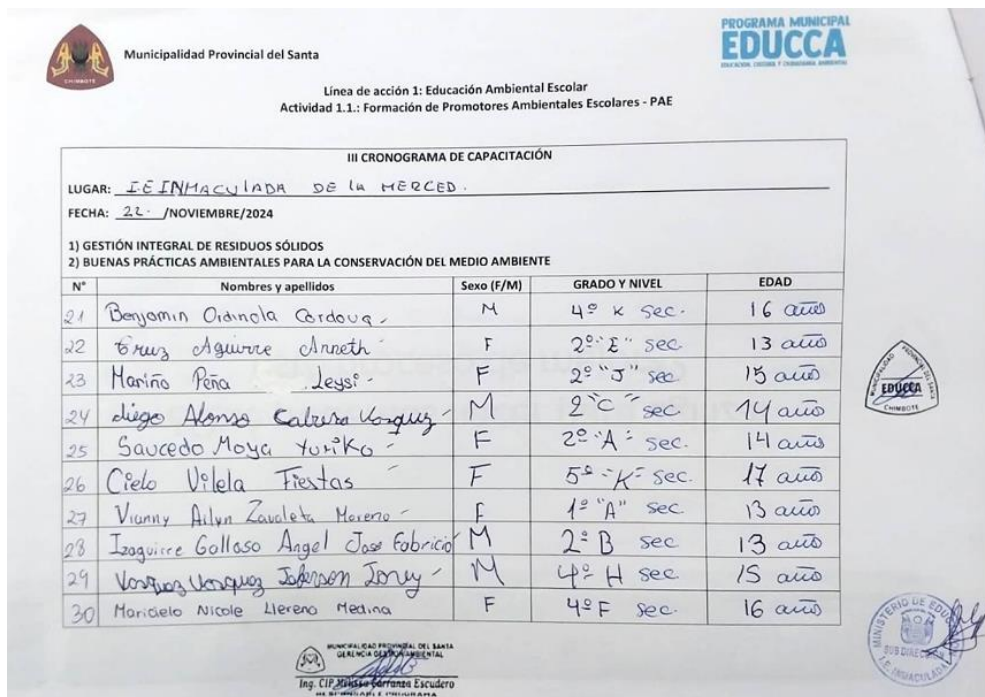 PROGRAMA MUNICIPAL
EDUCCA
EDUCACIÓN, CULTURA Y CIUDADANÍA AMBIENTAL
CHIMBOTE
Municipalidad Provincial del Santa
Línea de acción 1: Educación Ambiental Escolar
Actividad 1.1.: Formación de Promotores Ambientales Escolares - PAE
III CRONOGRAMA DE CAPACITACIÓN
LUGAR: I.E INMACULADA DE la MERCED.
FECHA: 22. /NOVIEMBRE/2024
1) GESTIÓN INTEGRAL DE RESIDUOS SÓLIDOS
2) BUENAS PRÁCTICAS AMBIENTALES PARA LA CONSERVACIÓN DEL MEDIO AMBIENTE
N° Nombres y apellidos Sexo (F/M) GRADO Y NIVEL EDAD
21 Benjamin Ordinola Cordova M 4º K sec. 16 años
22 Cruz Aguirre Anneth F 2º "E" sec 13 años
23 Mariño Peña Leysi F 2º "J" sec 15 años
24 diego Alonso Cabrera Vasquez M 2 "C" sec 14 años
25 Saucedo Moya Yuriko F 2º "A" sec. 14 años
26 Cielo Vilela Fiestas F 5º "K" sec. 17 años
27 Vianny Ailyn Zavaleta Moreno F 1º "A" sec 13 años
28 Izaguirre Golloso Angel Jose Fabricio M 2º B sec 13 años
29 Vasquez Vasquez Jaferson M 4º H sec 15 años
30 Maricielo Nicole Llereno Medina F 4º F sec. 16 años
MUNICIPALIDAD PROVINCIAL DEL SANTA
EDUCCA
CHIMBOTE
MINISTERIO DE EDU
SUB DIRECCIÓN
I.E. INMACULADA
MUNICIPALIDAD PROVINCIAL DEL SANTA
GERENCIA GESTIÓN AMBIENTAL
Ing. CIP Melissa Carranza Escudero
RESPONSABLE PROGRAMA